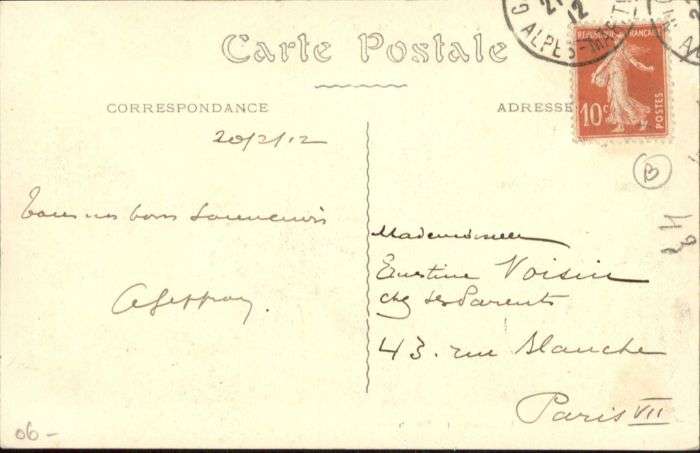 Carte Postale
CORRESPONDANCE
ADRESSE
G
21
12
ALPES-MARIT
RÉPUBLIQUE FRANÇAISE
10c
POSTES
20/2/12
B
Tous nos bons souvenirs
Mademoiselle
Ernestine Voisin
chez ses Parents
43. rue Blanche
Paris VII
06-